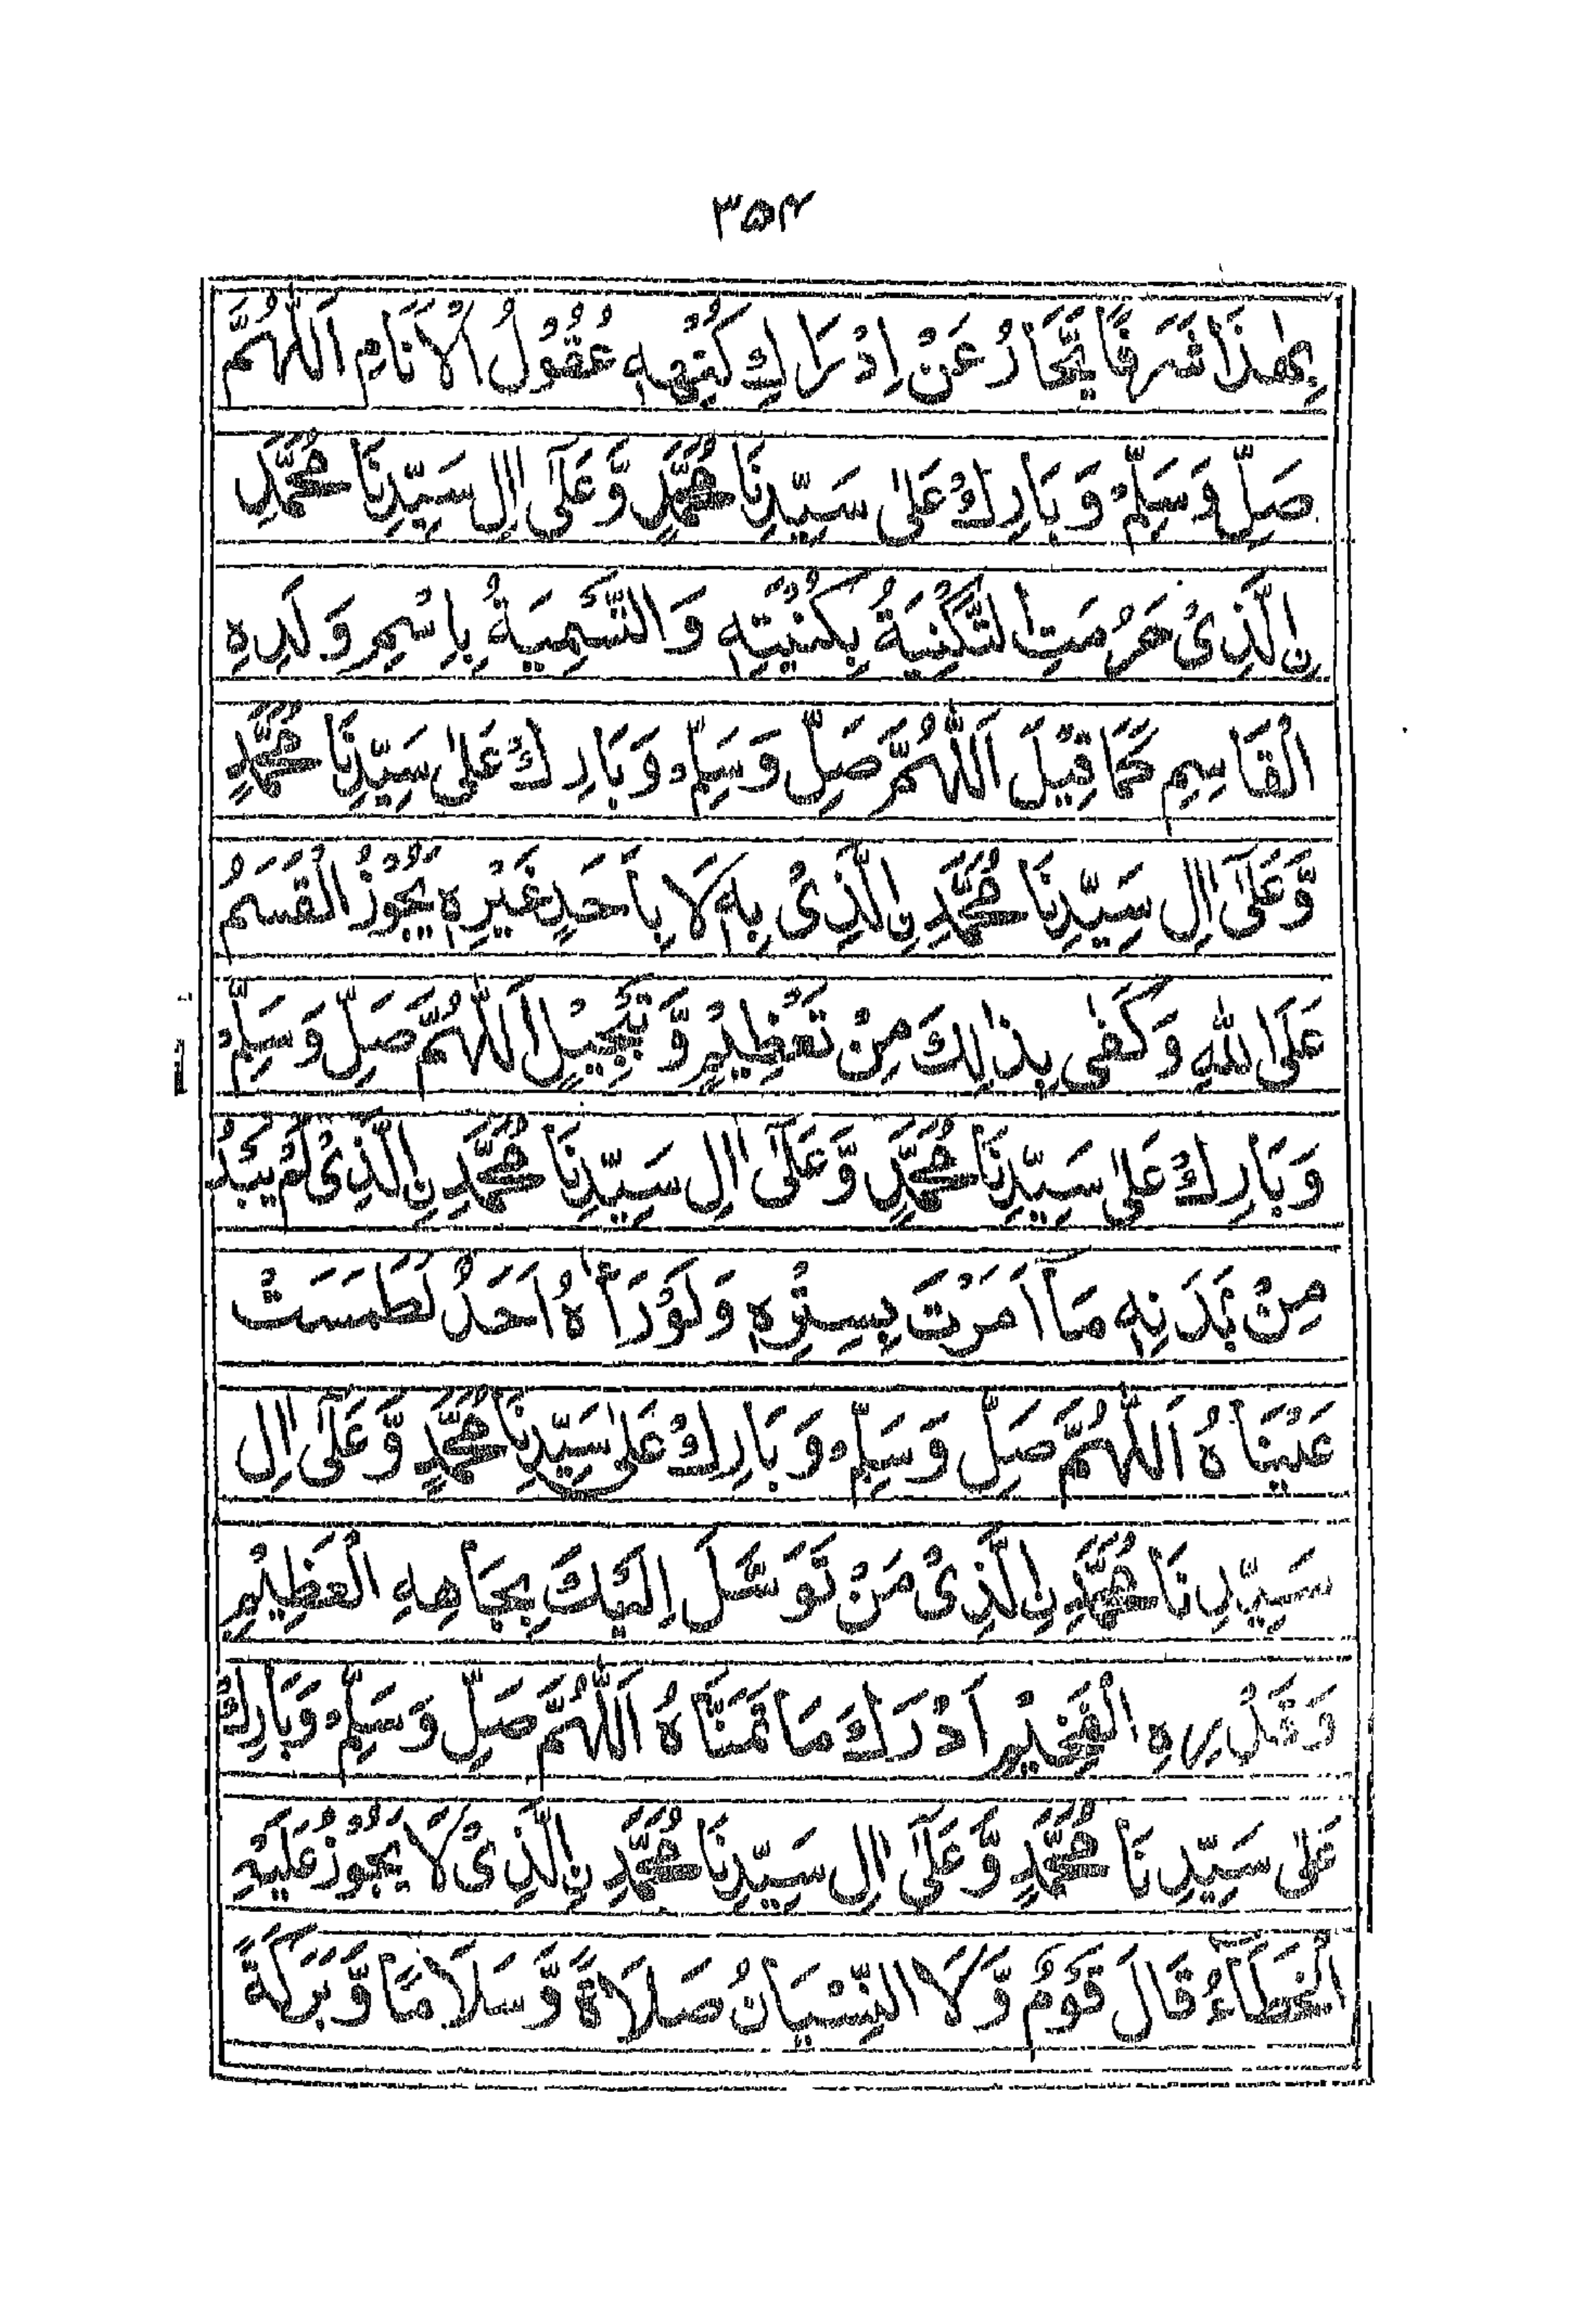 ۳۵۲
بِهٰذَا شَرَفًا يَّحَارُ عَنْ اِدْرَاكِ كُنْهِهٖ عُقُوْلُ الْاَنَامِ اَللّٰهُمَّ
صَلِّ وَسَلِّمْ وَبَارِكْ عَلٰى سَيِّدِنَا مُحَمَّدٍ وَّعَلٰٓى اٰلِ سَيِّدِنَا مُحَمَّدِ
نِ الَّذِىْ حَرُمَتِ التَّكْنِيَةُ بِكُنْيَتِهٖ وَالتَّسْمِيَةُ بِاسْمِ وَلَدِهِ
الْقَاسِمِ كَمَا قِيْلَ اَللّٰهُمَّ صَلِّ وَسَلِّمْ وَبَارِكْ عَلٰى سَيِّدِنَا مُحَمَّدٍ
وَّعَلٰٓى اٰلِ سَيِّدِنَا مُحَمَّدِ نِ الَّذِىْ بِهٖ لَا بِاَحَدٍ غَيْرِهٖ يَجُوْزُ الْقَسَمُ
عَلَى اللّٰهِ وَكَفٰى بِذٰلِكَ مِنْ تَعْظِيْمٍ وَّتَبْجِيْلٍ اَللّٰهُمَّ صَلِّ وَسَلِّمْ
وَبَارِكْ عَلٰى سَيِّدِنَا مُحَمَّدٍ وَّعَلٰٓى اٰلِ سَيِّدِنَا مُحَمَّدِ نِ الَّذِىْ لَمْ يَبْدُ
مِنْ بَدَنِهٖ مَآ اَمَرْتَ بِسِتْرِهٖ وَلَوْ رَاٰهُ اَحَدٌ لَطَمَسَتْ
عَيْنَاهُ اَللّٰهُمَّ صَلِّ وَسَلِّمْ وَبَارِكْ عَلٰى سَيِّدِنَا مُحَمَّدٍ وَّعَلٰٓى اٰلِ
سَيِّدِنَا مُحَمَّدِ نِ الَّذِىْ مَنْ تَوَسَّلَ اِلَيْكَ بِجَاهِهِ الْعَظِيْمِ
وَقَدْرِهِ الْفَخِيْمِ اَدْرَكَ مَا تَمَنَّاهُ اَللّٰهُمَّ صَلِّ وَسَلِّمْ وَبَارِكْ
عَلٰى سَيِّدِنَا مُحَمَّدٍ وَّعَلٰٓى اٰلِ سَيِّدِنَا مُحَمَّدِ نِ الَّذِىْ لَا يَجُوْزُ عَلَيْهِ
الْخَطَآءُ قَالَ قَوْمٌ وَّلَا النِّسْيَانُ صَلَاةً وَّسَلَامًا وَّبَرَكَةً